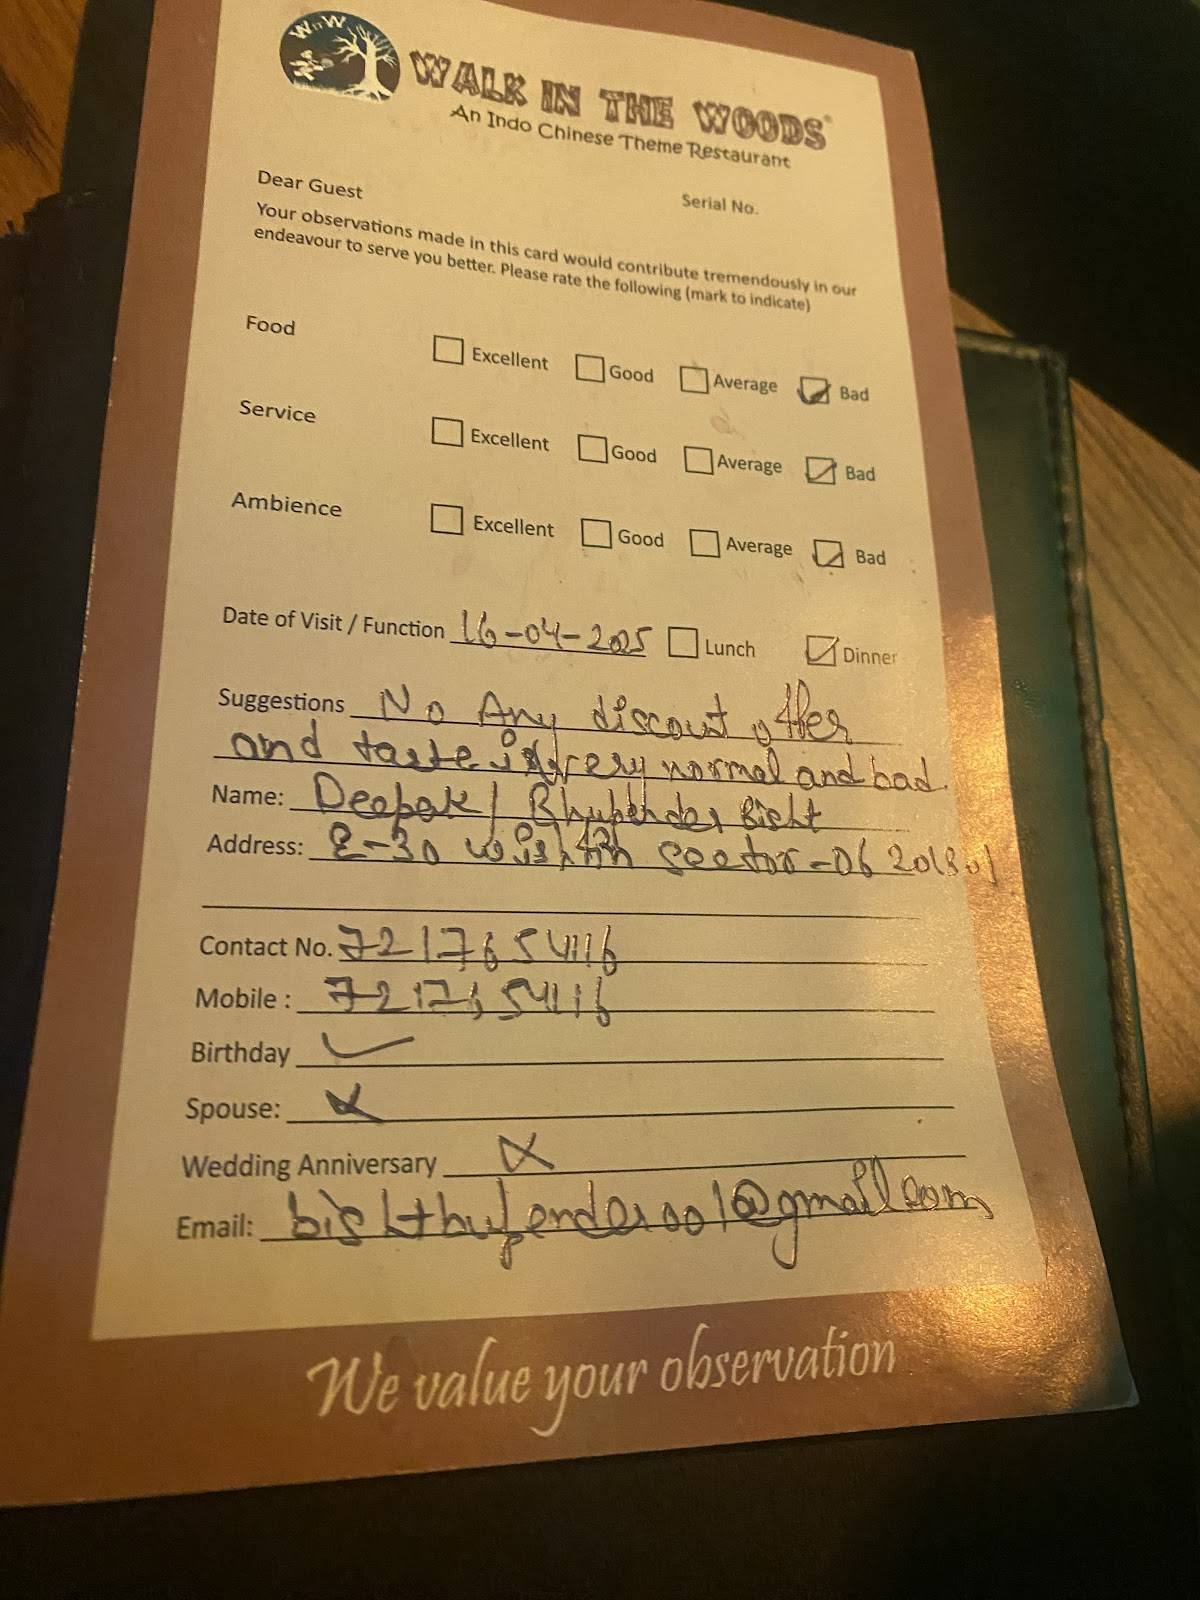 WnW
WALK IN THE WOODS®
An Indo Chinese Theme Restaurant
Dear Guest Serial No.
Your observations made in this card would contribute tremendously in our
endeavour to serve you better. Please rate the following (mark to indicate)
Food Excellent Good Average Bad
Service Excellent Good Average Bad
Ambience Excellent Good Average Bad
Date of Visit / Function 16-04-2025 Lunch Dinner
Suggestions No Any discout offer
and taste is very normal and bad.
Name: Deepak / Bhupender Bisht
Address: sector-06
Contact No. 7217654116
Mobile : 7217654116
Birthday
Spouse:
Wedding Anniversary
Email:
We value your observation